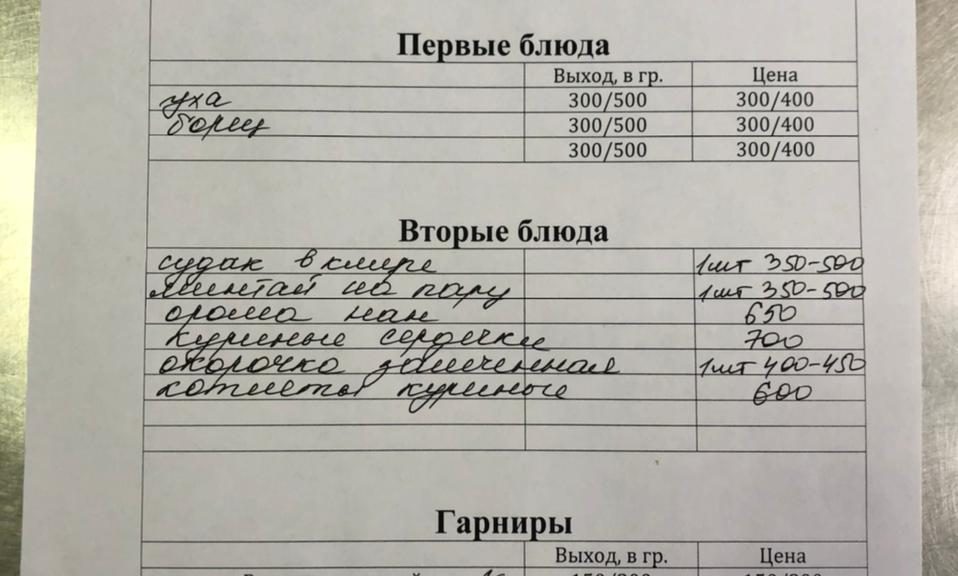 Первые блюда
Выход, в гр. Цена
уха 300/500 300/400
борщ 300/500 300/400
300/500 300/400
Вторые блюда
судак в кляре 1шт 350-500
минтай на пару 1шт 350-500
орома нан 650
куриные сердечки 700
окорочка запеченная 1шт 400-450
котлеты куриные 600
Гарниры
Выход, в гр. Цена